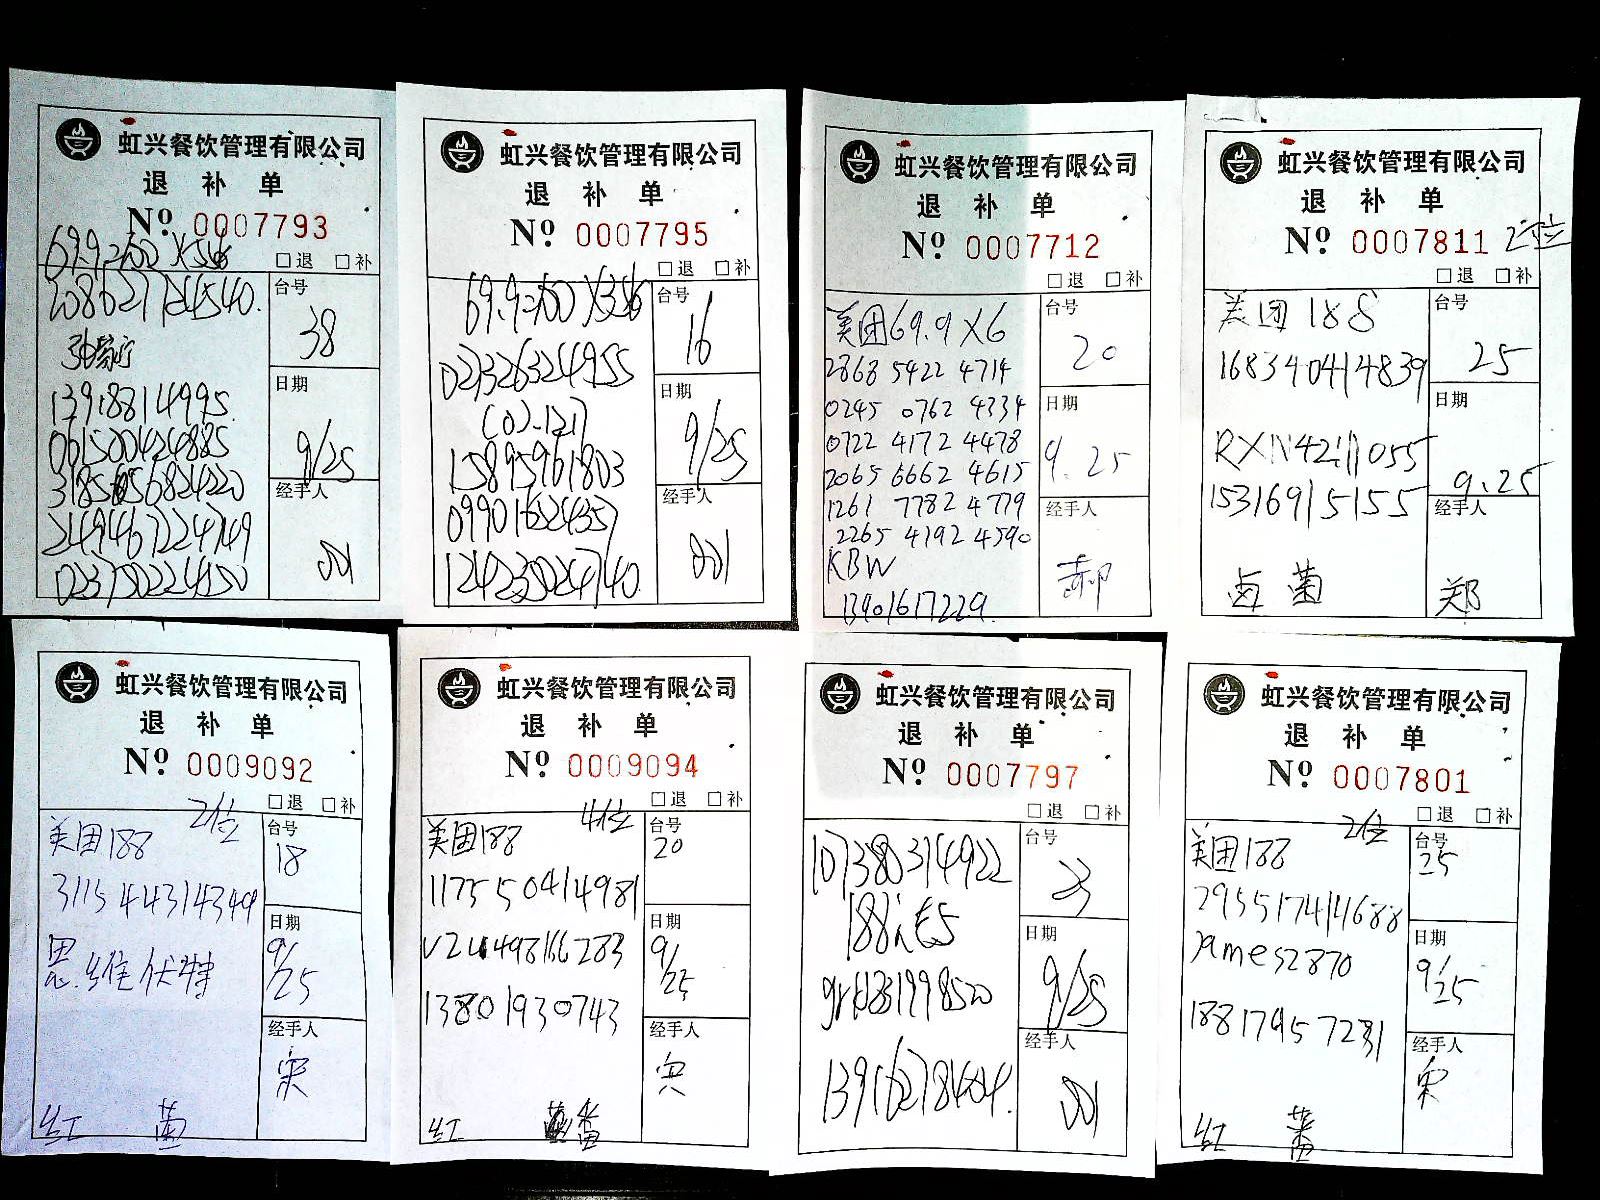 虹兴餐饮管理有限公司
退 补 单
Nº 0007793
□退 □补
台号
38
208627724540.
13918814995
日期
9/25
061500424885
经手人
虹兴餐饮管理有限公司
退 补 单
Nº 0007795
□退 □补
台号
16
日期
9/25
15895961803
经手人
虹兴餐饮管理有限公司
退 补 单
Nº 0007712
□退 □补
美团69.9X6
台号
20
2868 5422 4714
0245 0762 4334
日期
9.25
0722 4172 4478
2065 6662 4615
1261 7782 4779
经手人
郝
2265 4192 4590
KBW
13901617229.
虹兴餐饮管理有限公司
退 补 单
Nº 0007811 2位
□退 □补
美团 188
台号
25
168340414839
日期
9.25
15316915155
经手人
郑
卤 菌
虹兴餐饮管理有限公司
退 补 单
Nº 0009092
□退 □补
2位
美团188
台号
18
3115 44314349
日期
9/25
思维伏特
经手人
宋
红 菌
虹兴餐饮管理有限公司
退 补 单
Nº 0009094
□退 □补
4位
美团188
台号
20
117550414981
日期
9/25
13801930743
经手人
宋
红 番
虹兴餐饮管理有限公司
退 补 单
Nº 0007797
□退 □补
台号
23
107380314922
日期
9/25
经手人
虹兴餐饮管理有限公司
退 补 单
Nº 0007801
□退 □补
2位
美团188
台号
25
295517414688
日期
9/25
james2870
18817957281
经手人
宋
红 番